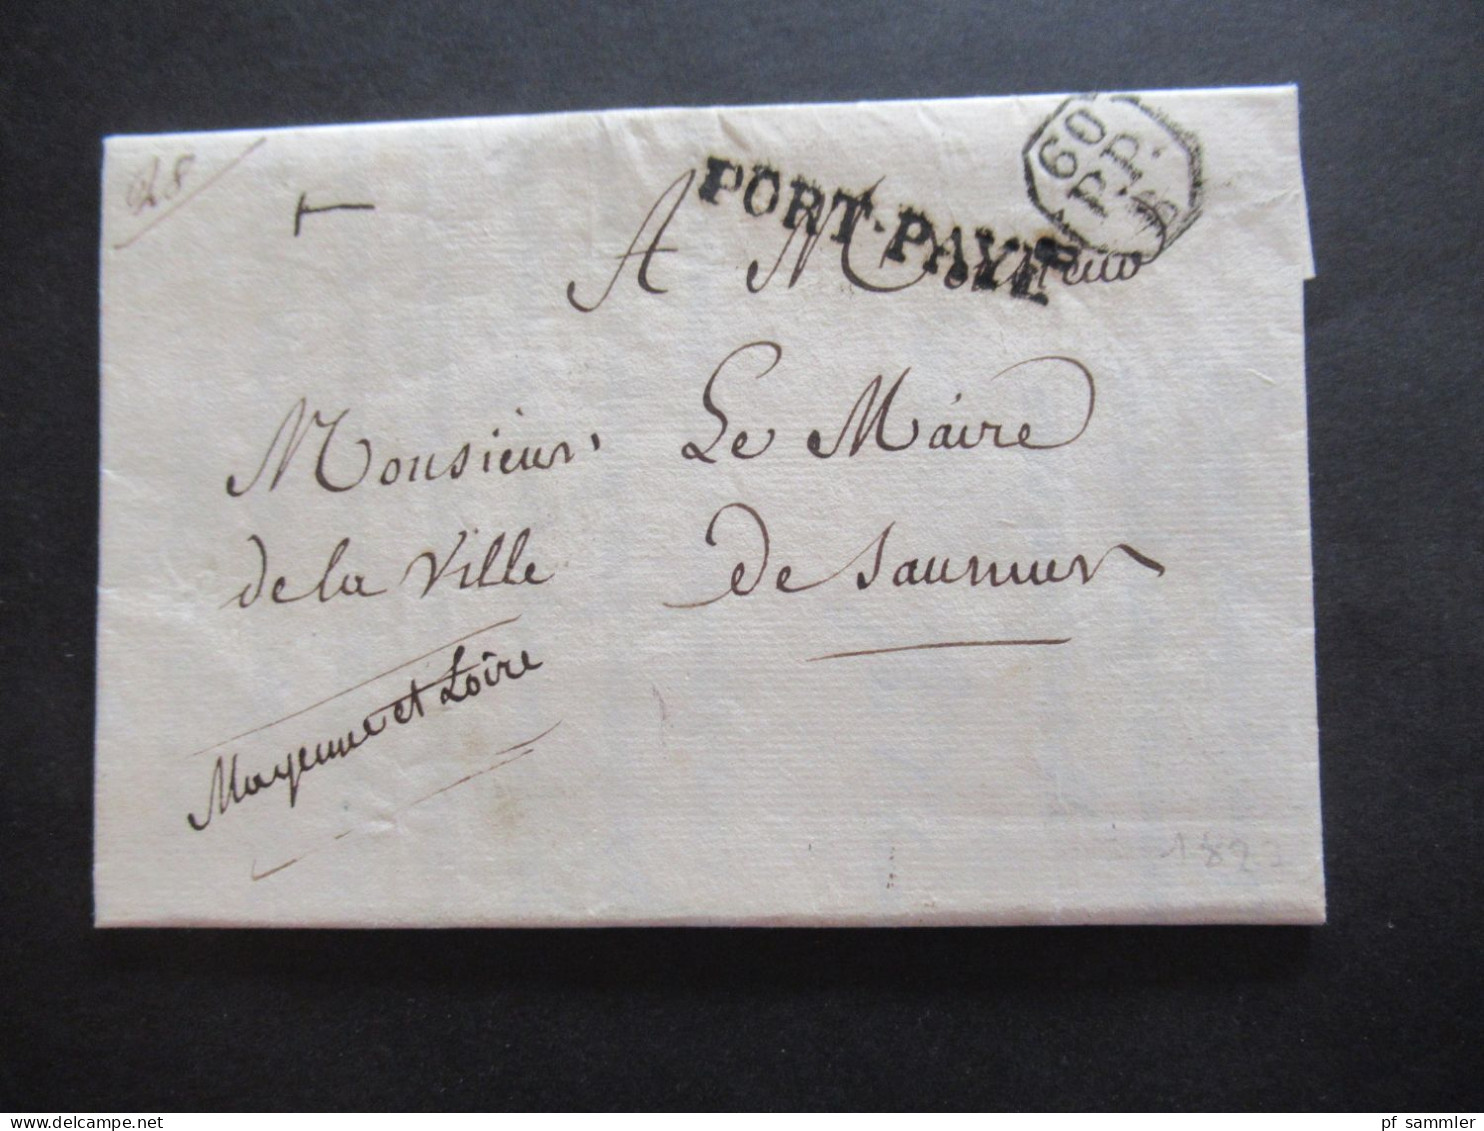 28
PORT-PAYÉ
60
P.P.
A Monsieur
Monsieur Le Maire
de la Ville de Saumur
Mayenne et Loire
182
delcampe.net
pf_sammler